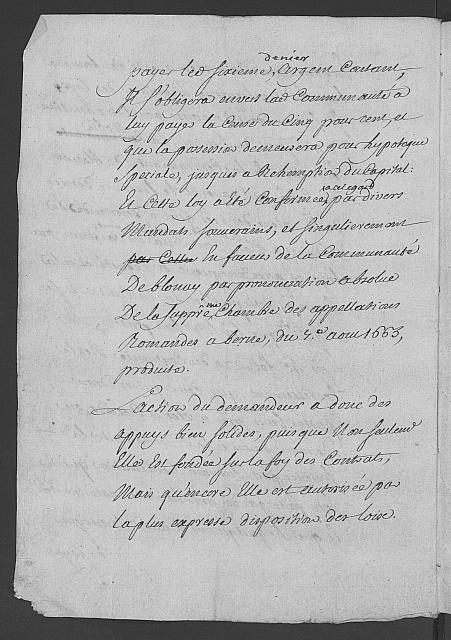 denier
payer led sixieme, argent Contant,
Il s'obligera envers lad Communauté à
luy payé la Cense du Cinq pour cent, et
que la possession demeurera pour hypoteque
speciale, jusques a Rehemption du Capital:
Et Cette loy a été Confirmée, par divers
Mandats souverains, et singulierement
par Cette En faveur de la Communauté
De blonay par prononciation absolue
De la Supprême Chambre des appellations
Romandes a berne, du 5.e aout 1663,
produite.
L'action du demandeur a donc des
appuys bien solides, puis que Non seulemt
Elle Est fondée sur la foy des Contrats,
Mais qu'encore Elle est autorisée par
la plus expresse disposition des loix.